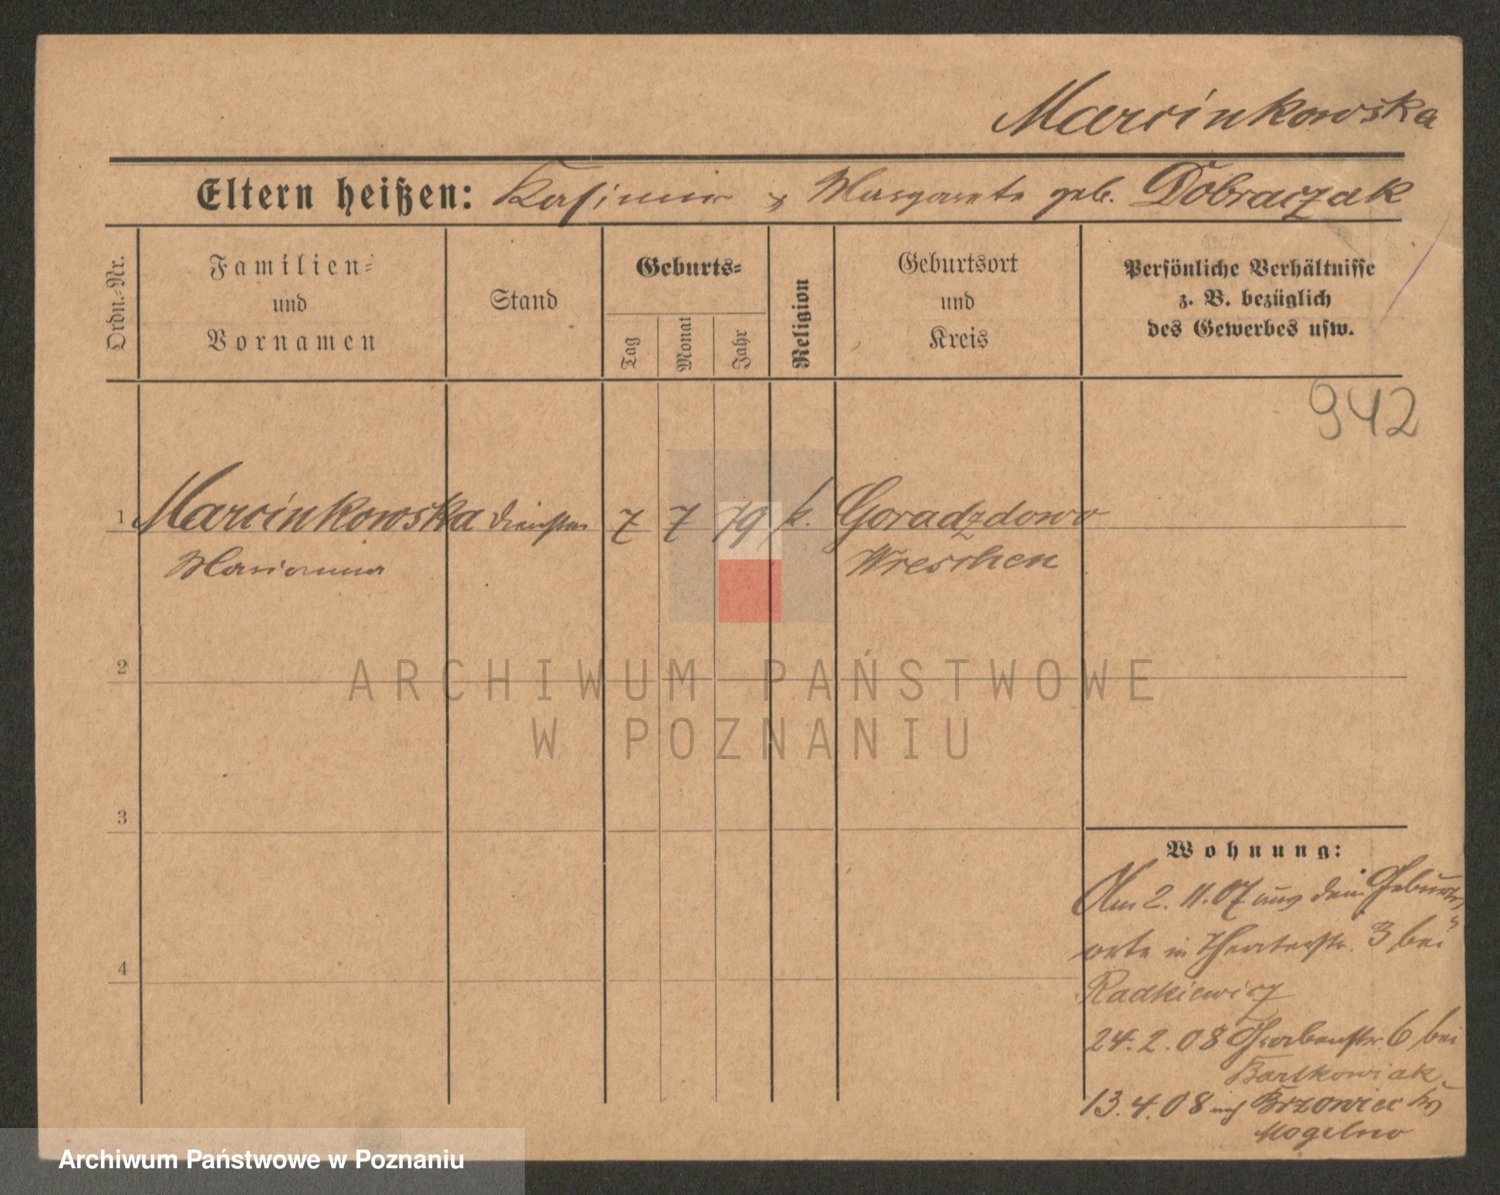 Marcinkowska
Eltern heißen: Kasimir & Margarete geb. Dobraczak
Ordn.-Nr.
Familien-
und
Vornamen
Stand
Geburts-
Tag
Monat
Jahr
Religion
Geburtsort
und
Kreis
Persönliche Verhältnisse
z. B. bezüglich
des Gewerbes usw.
942
1 Marcinkowska 7 7 79 k. Goradzdowo
Marianna Wreschen
2
ARCHIWUM PAŃSTWOWE
W POZNANIU
3
4
Wohnung:
Am 2. 11. 07 aus dem Geburts-
orte in Theaterstr. 3 bei
Radkiewicz
24. 2. 08 Grabenstr. 6 bei
Bartkowiak
13. 4. 08 Brzowiec Kr
Mogelno
Archiwum Państwowe w Poznaniu